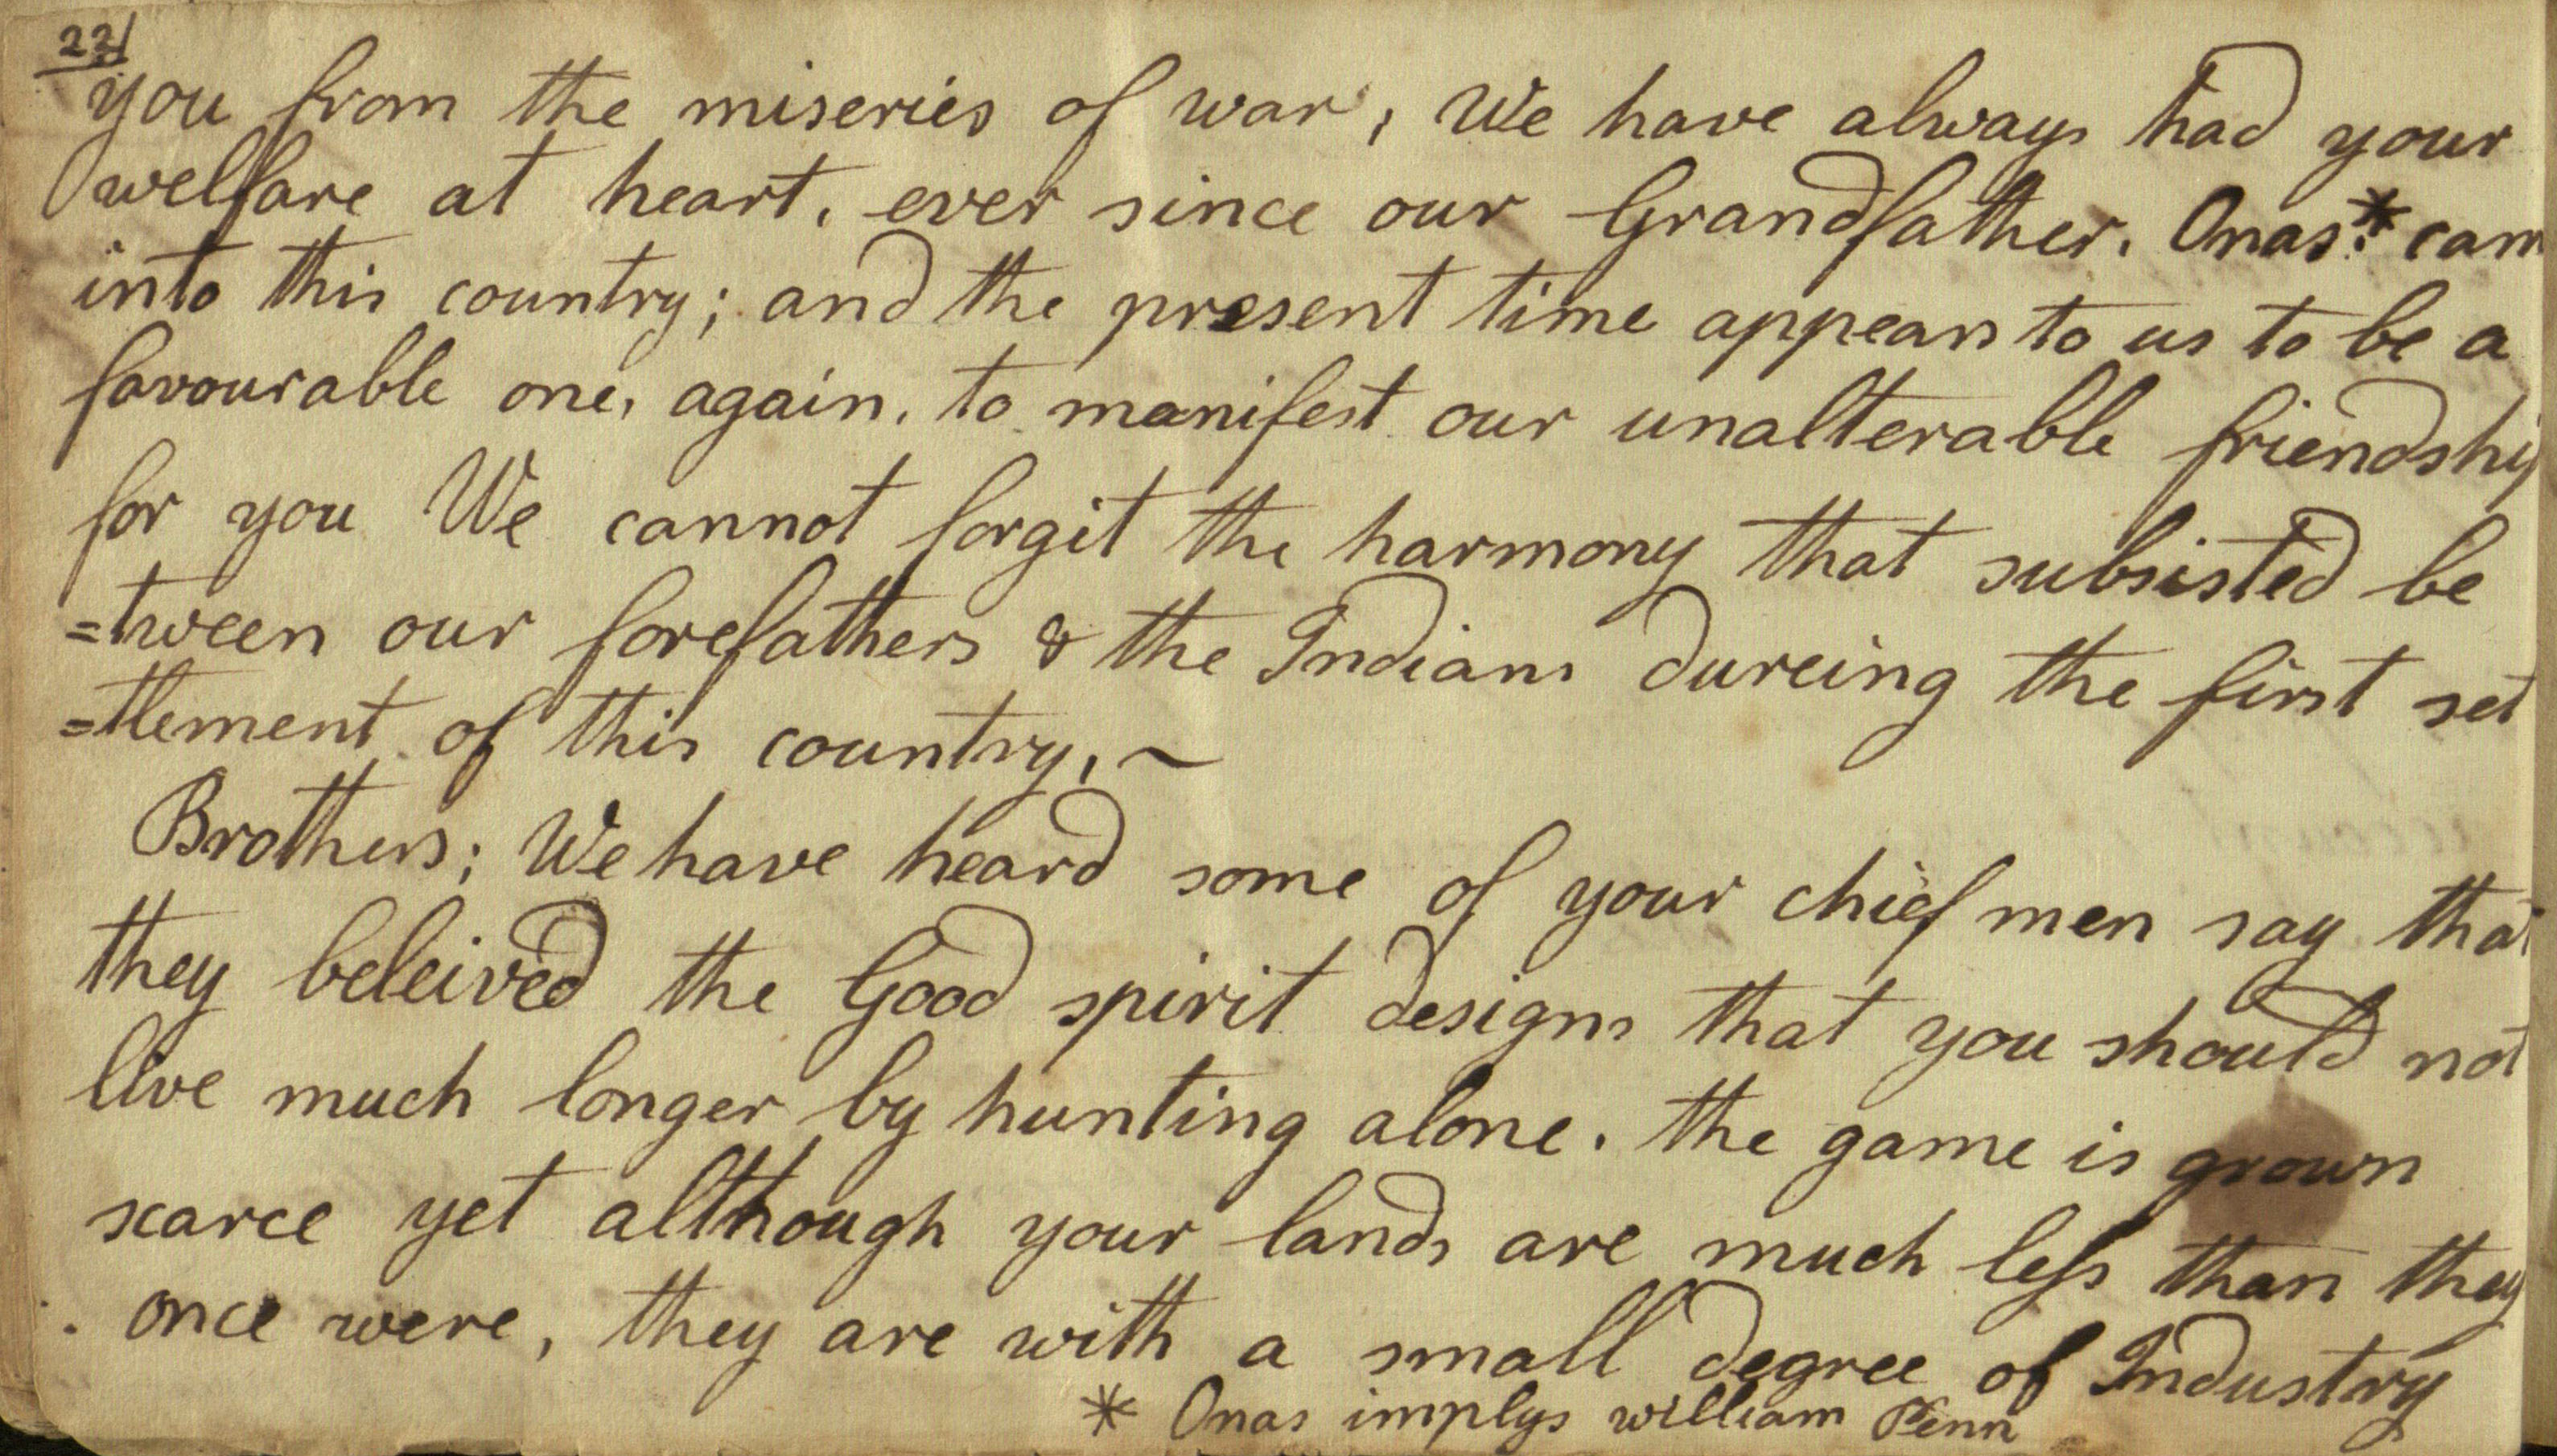 22
you from the miseries of war, We have always had your
welfare at heart, ever since our Grandfather, Onas* cam
into this country; and the present time appears to us to be a
favourable one, again, to manifest our unalterable friendship
for you We cannot forgit the harmony that subsisted be
=tween our forefathers & the Indians dureing the first set
=tlement of this country, ~
Brothers; We have heard some of your chief men say that
they beleived the Good spirit designs that you should not
live much longer by hunting alone. the game is grown
scarce yet although your lands are much less than they
once were, they are with a small degree of Industry
* Onas implys william Penn